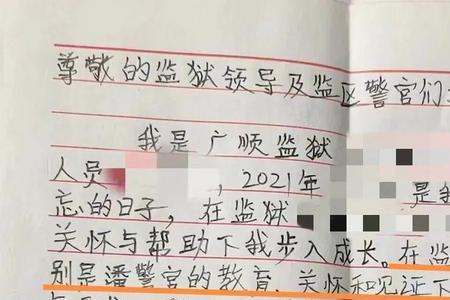 尊敬的监狱领导及监区警官们
我是广顺监狱
人员，2021年是我
忘的日子，在监狱
关怀与帮助下我步入成长。在监
别是潘警官的教育、关怀和见证下